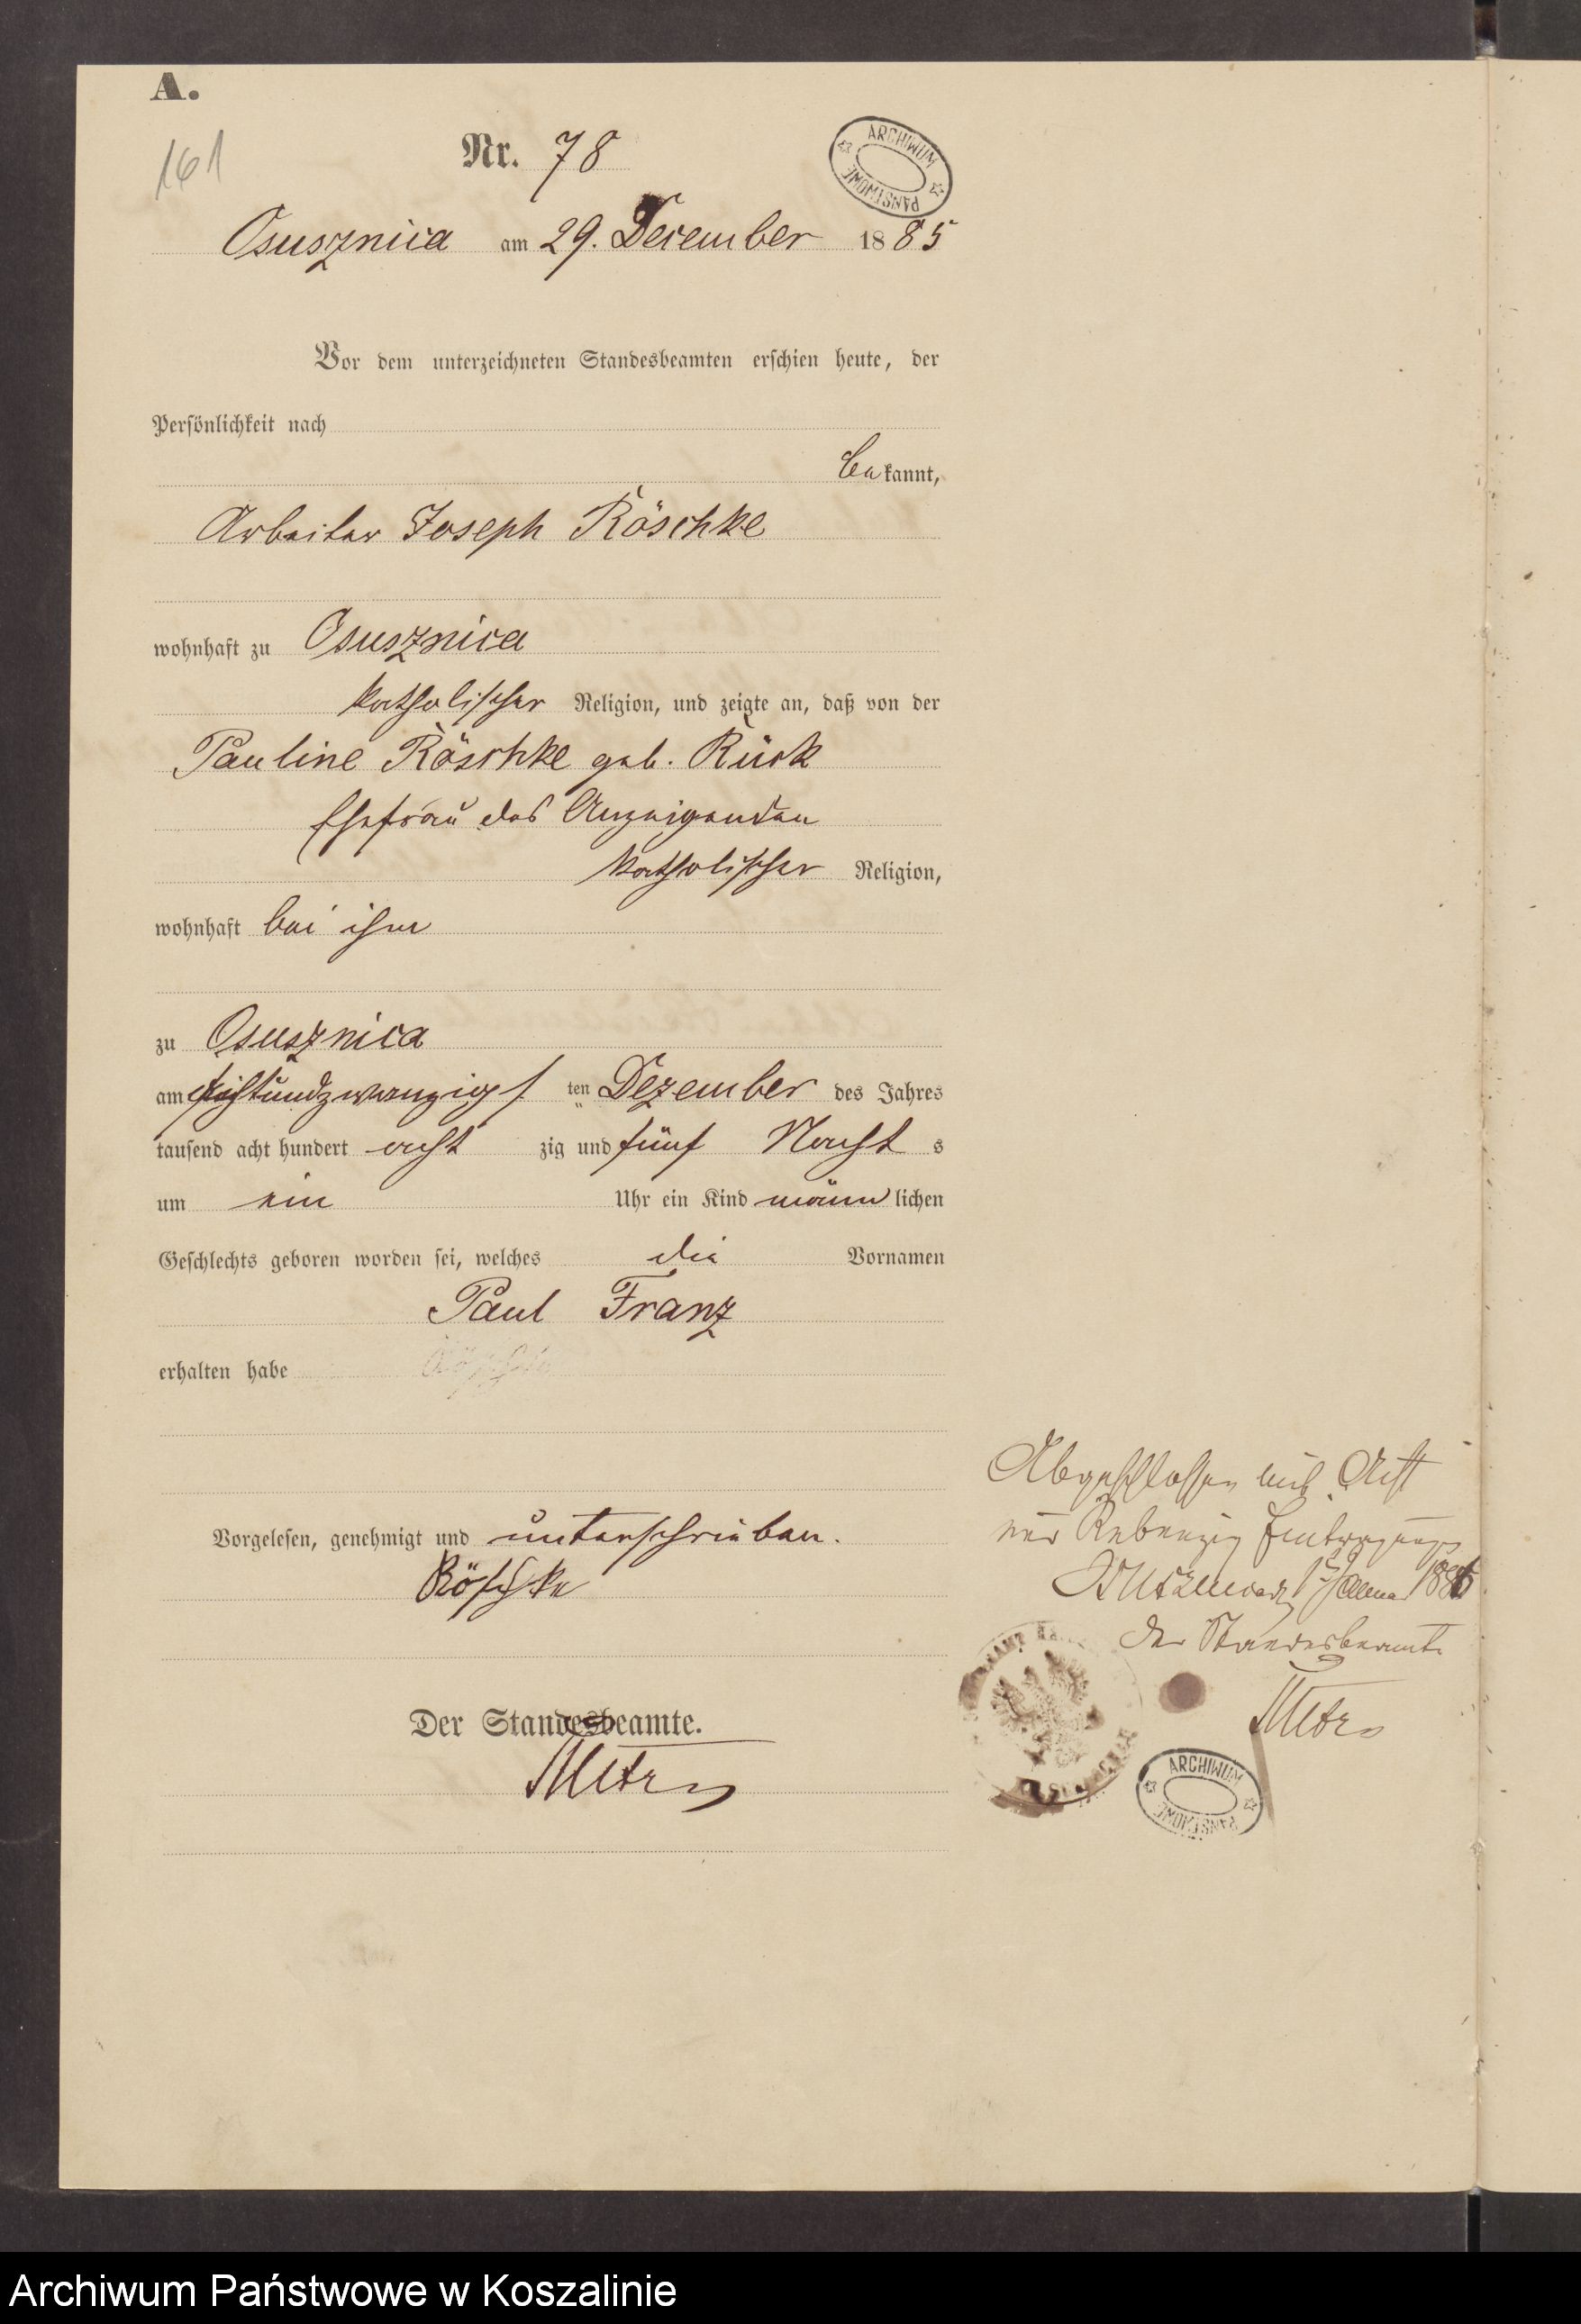 A.
161
Nr. 78
ARCHIWUM PAŃSTWOWE
Osusznica am 29. December 1885
Vor dem unterzeichneten Standesbeamten erschien heute, der
Persönlichkeit nach
bekannt,
Arbeiter Joseph Röschke
wohnhaft zu Osusznica
katholischer Religion, und zeigte an, daß von der
Pauline Röschke geb. Rück
Ehefrau des Anzeigenden
katholischer Religion,
wohnhaft bei ihm
zu Osusznica
am achtundzwanzigsten Dezember des Jahres
tausend acht hundert achtzig und fünf Nachts
um ein Uhr ein Kind männlichen
Geschlechts geboren worden sei, welches die Vornamen
Paul Franz
erhalten habe
Vorgelesen, genehmigt und unterschrieben.
Röschke
Der Standesbeamte.
Abgeschlossen mit Acht
und Siebenzig Eintragungen
1886
der Standesbeamte
ARCHIWUM PAŃSTWOWE
Archiwum Państwowe w Koszalinie